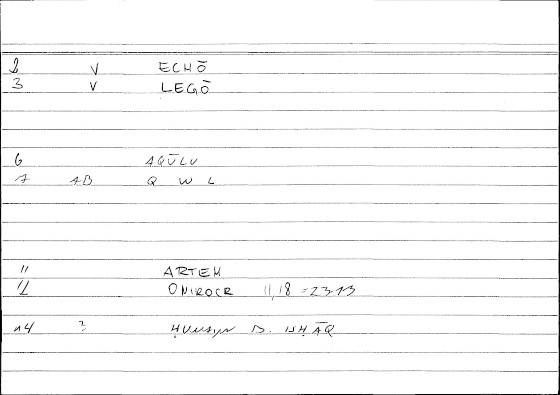 2 V ECHŌ
3 V LEGŌ
6 AQŪLU
7 AB Q W L
11 ARTEM
12 ONIROCR 11,18 = 23.13
14 ? ḤUNAYN B. ISḤĀQ